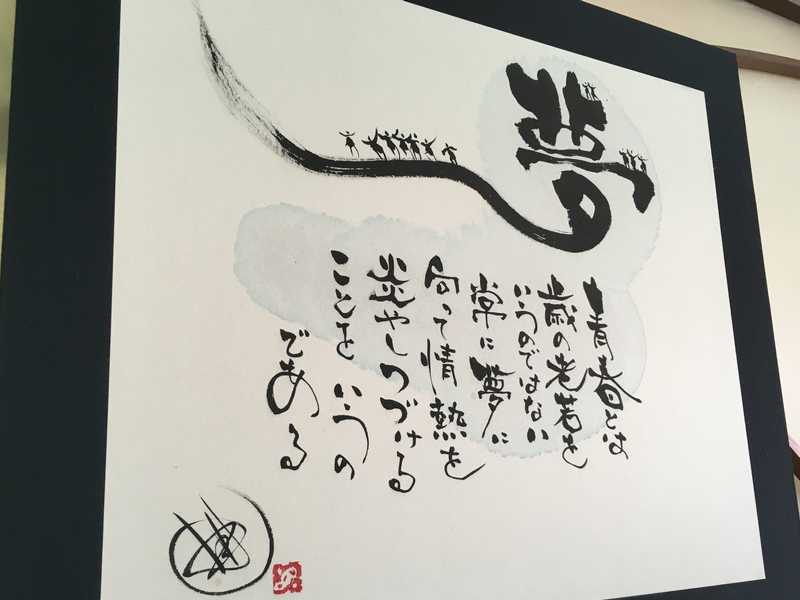 夢
青春とは
歳の老若を
いうのではない
常に夢に
向って情熱を
炎やしつづける
ことをいうの
である